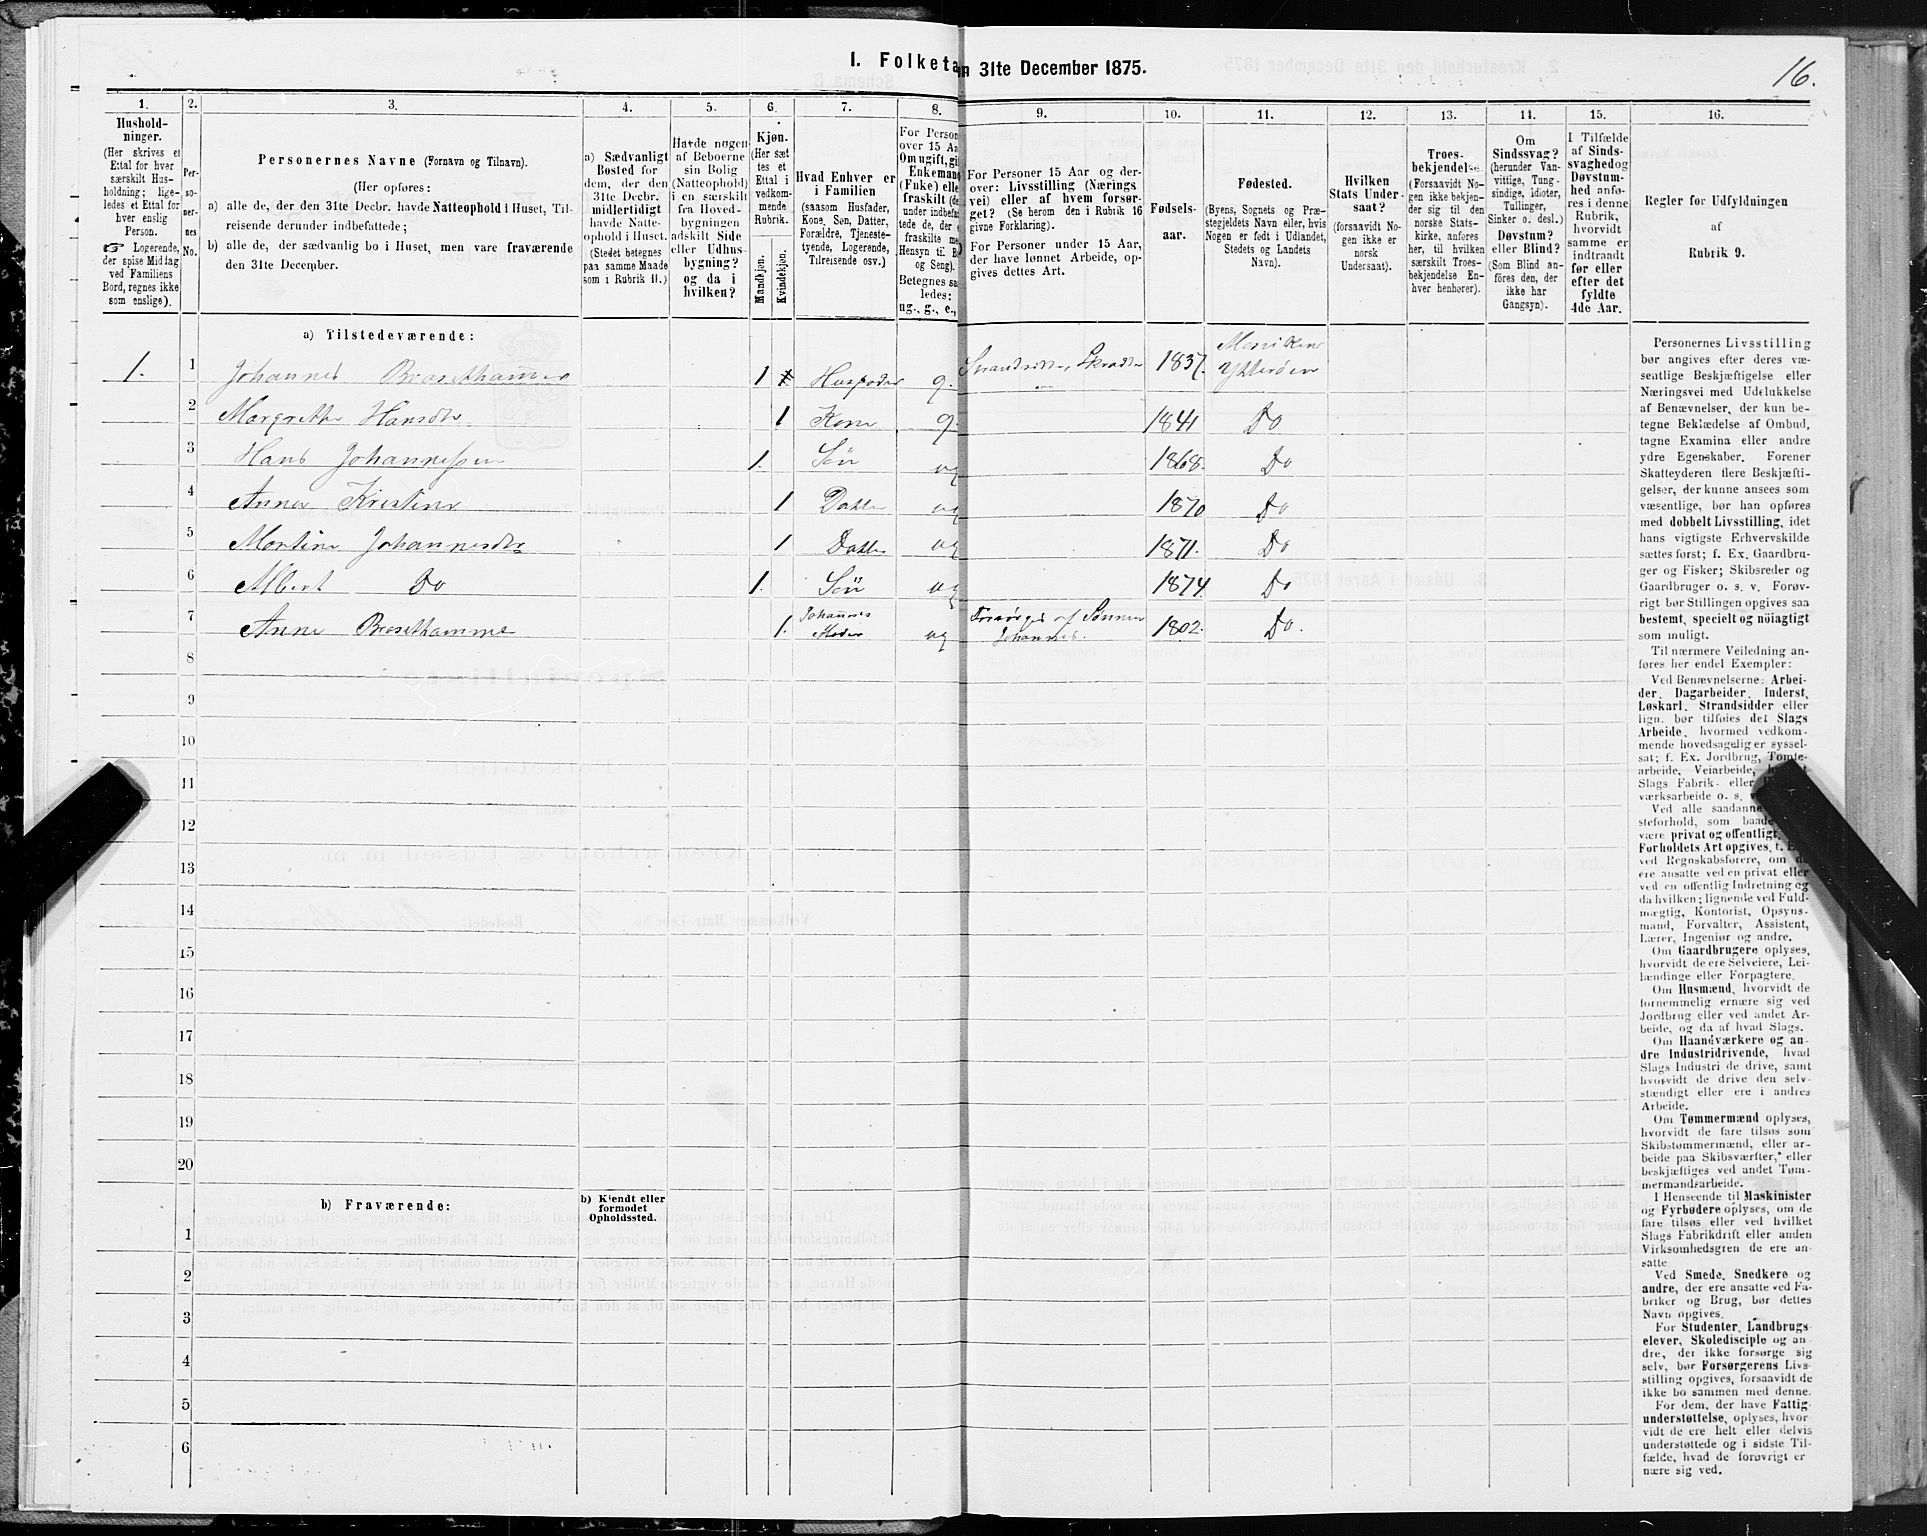 I. Folketa n 31te December 1875.
16.
1.
2.
3.
4.
5.
6.
7.
8.
9.
10.
11.
12.
13.
14.
15.
16.
Hushold-
ninger.
(Her skrives et
Ettal for hver
særskilt Hus-
holdning; lige-
ledes et Ettal for
hver enslig
Person.
☞ Logerende,
der spise Middag
ved Familiens
Bord, regnes ikke
som enslige).
Per-
so-
ner-
nes
No.
Personernes Navne (Fornavn og Tilnavn).
(Her opføres:
a) alle de, der den 31te Decbr. havde Natteophold i Huset, Til-
reisende derunder indbefattede;
b) alle de, der sædvanlig bo i Huset, men vare fraværende
den 31te December.
a) Sædvanligt
Bosted for
dem, der den
31te Decbr.
midlertidigt
havde Natte-
ophold i Huset.
(Stedet betegnes
paa samme Maade
som i Rubrik 11.)
Havde nogen
af Beboerne
sin Bolig
(Natteophold)
i en særskilt
fra Hoved-
bygningen
adskilt Side
eller Udhus-
bygning?
og da i
hvilken?
Kjøn.
(Her sæt
tes et
Ettal i
vedkom-
mende
Rubrik.
Mandkjøn.
Kvindekjøn.
Hvad Enhver er
i Familien
(saasom Husfader,
Kone, Søn, Datter,
Forældre, Tjeneste-
tyende, Logerende,
Tilreisende osv.)
For Person
over 15 Aa
Om ugift, gi
Enkemand
(Enke) elle
fraskilt (de
under indbefat
tede de, der e
fraskilte me
Hensyn til B
og Seng).
Betegnes sa
ledes:
ug., g., e.,
For Personer 15 Aar og der-
over: Livsstilling (Nærings
vei) eller af hvem forsør-
get? (Se herom den i Rubrik 16
givne Forklaring).
For Personer under 15 Aar,
der have lønnet Arbeide, op-
gives dettes Art.
Fødsels-
aar.
Fødested.
(Byens, Sognets og Præ-
stegjeldets Navn eller, hvis
Nogen er født i Udlandet,
Stedets og Landets
Navn).
Hvilken
Stats Under-
saat?
(forsaavidt No-
gen ikke er
norsk
Undersaat).
Troes-
bekjendelse.
(Forsaavidt No-
gen ikke bekjen-
der sig til den
norske Stats-
kirke, anføres
her, til hvilken
særskilt Troes-
bekjendelse En-
hver henhører).
Om
Sindssvag?
(herunder Van-
vittige, Tung-
sindige, Idioter,
Tullinger,
Sinker o. desl.)
Døvstum?
eller Blind?
(Som Blind an-
föres den, der
ikke har
Gangsyn).
I Tilfælde
af Sinds-
svaghed og
Døvstum-
hed anfø-
res i denne
Rubrik,
hvorvidt
samme er
indtraadt
før eller
efter det
fyldte
4de Aar.
Regler for Udfyldningen
af
Rubrik 9.
a) Tilstedeværende:
1. 1 Johannes Brosethammer 1 Husfader g. 1837. Ytterøen
2 Margrethe Hansdtr 1 Kone g. 1841 Do
3 Hans Johannessen 1. Søn ug 1868. Do
4 Anna Kristine 1 Datter ug 1870 Do
5 Martine Johannesdtr 1 Datter ug 1871. Do
6 Albert Do 1. Søn ug 1874. Do
7 Anne Brosethammer 1. Johannes Moder ug Forsørges af Sønnen Johannes. 1802. Do.
8
9
10
11
12
13
14
15
16
17
18
19
20
b) Fraværende:
b) Kjendt eller
formodet
Opholdssted.
1
2
3
4
5
6
Personernes Livsstilling
bør angives efter deres væ-
sentlige Beskjæftigelse eller
Næringsvei med Udelukkelse
af Benævnelser, der kun be-
tegne Beklædelse af Ombud,
tagne Examina eller andre
ydre Egenskaber. Forener
Skatteyderen flere Beskjæfti-
gelser, der kunne ansees som
væsentlige, bør han opføres
med dobbelt Livsstilling, idet
hans vigtigste Erhvervskilde
sættes først; f. Ex. Gaardbru-
ger og Fisker; Skibsreder og
Gaardbruger o. s. v. Forøv-
rigt bør Stillingen opgives saa
bestemt, specielt og nöiagtig
som muligt.
Til nærmere Veiledning an-
føres her endel Exempler:
Ved Benævnelserne: Arbei-
der, Dagarbeider, Inderst,
Løskarl, Strandsidder eller
lign. bør tilføies det Slags
Arbeide, hvormed vedkom-
mende hovedsagelig er syssel-
sat; f. Ex. Jordbrug, Tomte-
arbeide, Veiarbeide,
Slags Fabrik- eller
værksarbeide o. s.
Ved alle saadanne
steforhold, som baade
være privat og offentligt,
Forholdets Art opgives, t. E
ved Regnskabsførere, om de
ere ansatte ved en privat eller
ved en offentlig Indretning og
da hvilken; lignende ved Fuld-
mægtig, Kontorist, Opsyns-
mand, Forvalter, Assistent,
Lærer, Ingeniør og andre.
Om Gaardbrugere oplyses,
hvorvidt de ere Selveiere, Lei-
lændinge eller Forpagtere.
Om Husmænd, hvorvidt de
fornemmelig ernære sig ved
Jordbrug eller ved andet Ar-
beide, og da af hvad Slags.
Om Haandværkere og an-
dre Industridrivende, hvad
Slags Industri de drive, samt
hvorvidt de drive den selv-
stændigt eller ere i andres
Arbeide.
Om Tømmermænd oplyses,
hvorvidt de fare tilsøs som
Skibstømmermænd, eller ar-
beide paa Skibsværfter, eller
beskjæftiges ved andet Tøm-
mermandsarbeide.
I Henseende til Maskinister
og Fyrbødere oplyses, om de
fare tilsøs eller ved hvilket
Slags Fabrikdrift eller anden
Virksomhedsgren de ere an-
satte.
Ved Smede, Snedkere og
andre, der ere ansatte ved Fa-
briker og Brug, bør dettes
Navn opgives.
For Studenter, Landbrugs-
elever, Skoledisciple og an-
dre, der ikke forsørge sig
selv, bør Forsørgerens Livs-
stilling opgives, forsaavidt de
ikke bo sammen med denne.
For dem, der have Fattig-
understøttelse, oplyses, hvor-
vidt de ere helt eller delvis
understøttede og i sidste Til-
fælde, hvad de forøvrigt er
nære sig ved.